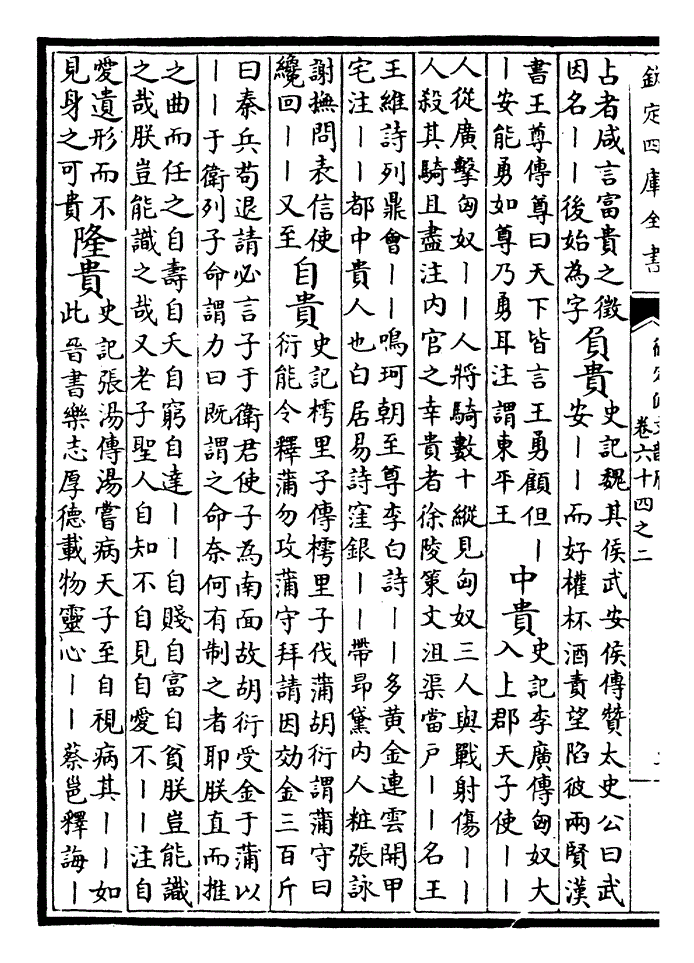 欽定四庫全書
卷六十四之二
占者咸言富貴之徵
因名丨丨後始為字
負貴
史記魏其侯武安侯傳贊太史公曰武
安丨丨而好權杯酒責望陷彼兩賢漢
書王尊傳尊曰天下皆言王勇顧但丨
丨安能勇如尊乃勇耳注謂東平王
中貴
史記李廣傳匈奴大
入上郡天子使丨丨
人從廣擊匈奴丨丨人將騎數十縱見匈奴三人與戰射傷丨丨
人殺其騎且盡注内官之幸貴者徐陵䇿文沮渠當户丨丨名王
王維詩列鼎會丨丨鳴珂朝至尊李白詩丨丨多黄金連雲開甲
宅注丨丨都中貴人也白居易詩窪銀丨丨帶昻黛内人粧張詠
謝撫問表信使
纔回丨丨又至
自貴
史記樗里子傳樗里子伐蒲胡衍謂蒲守曰
衍能令釋蒲勿攻蒲守拜請因効金三百斤
曰秦兵苟退請必言子于衛君使子為南面故胡衍受金于蒲以
丨丨于衛列子命謂力曰既謂之命奈何有制之者耶朕直而推
之曲而任之自壽自夭自窮自達丨丨自賤自富自貧朕豈能識
之哉朕豈能識之哉又老子聖人自知不自見自愛不丨丨注自
愛遺形而不
見身之可貴
隆貴
史記張湯傳湯嘗病天子至自視病其丨丨如
此晉書樂志厚德載物靈心丨丨蔡邕釋誨丨